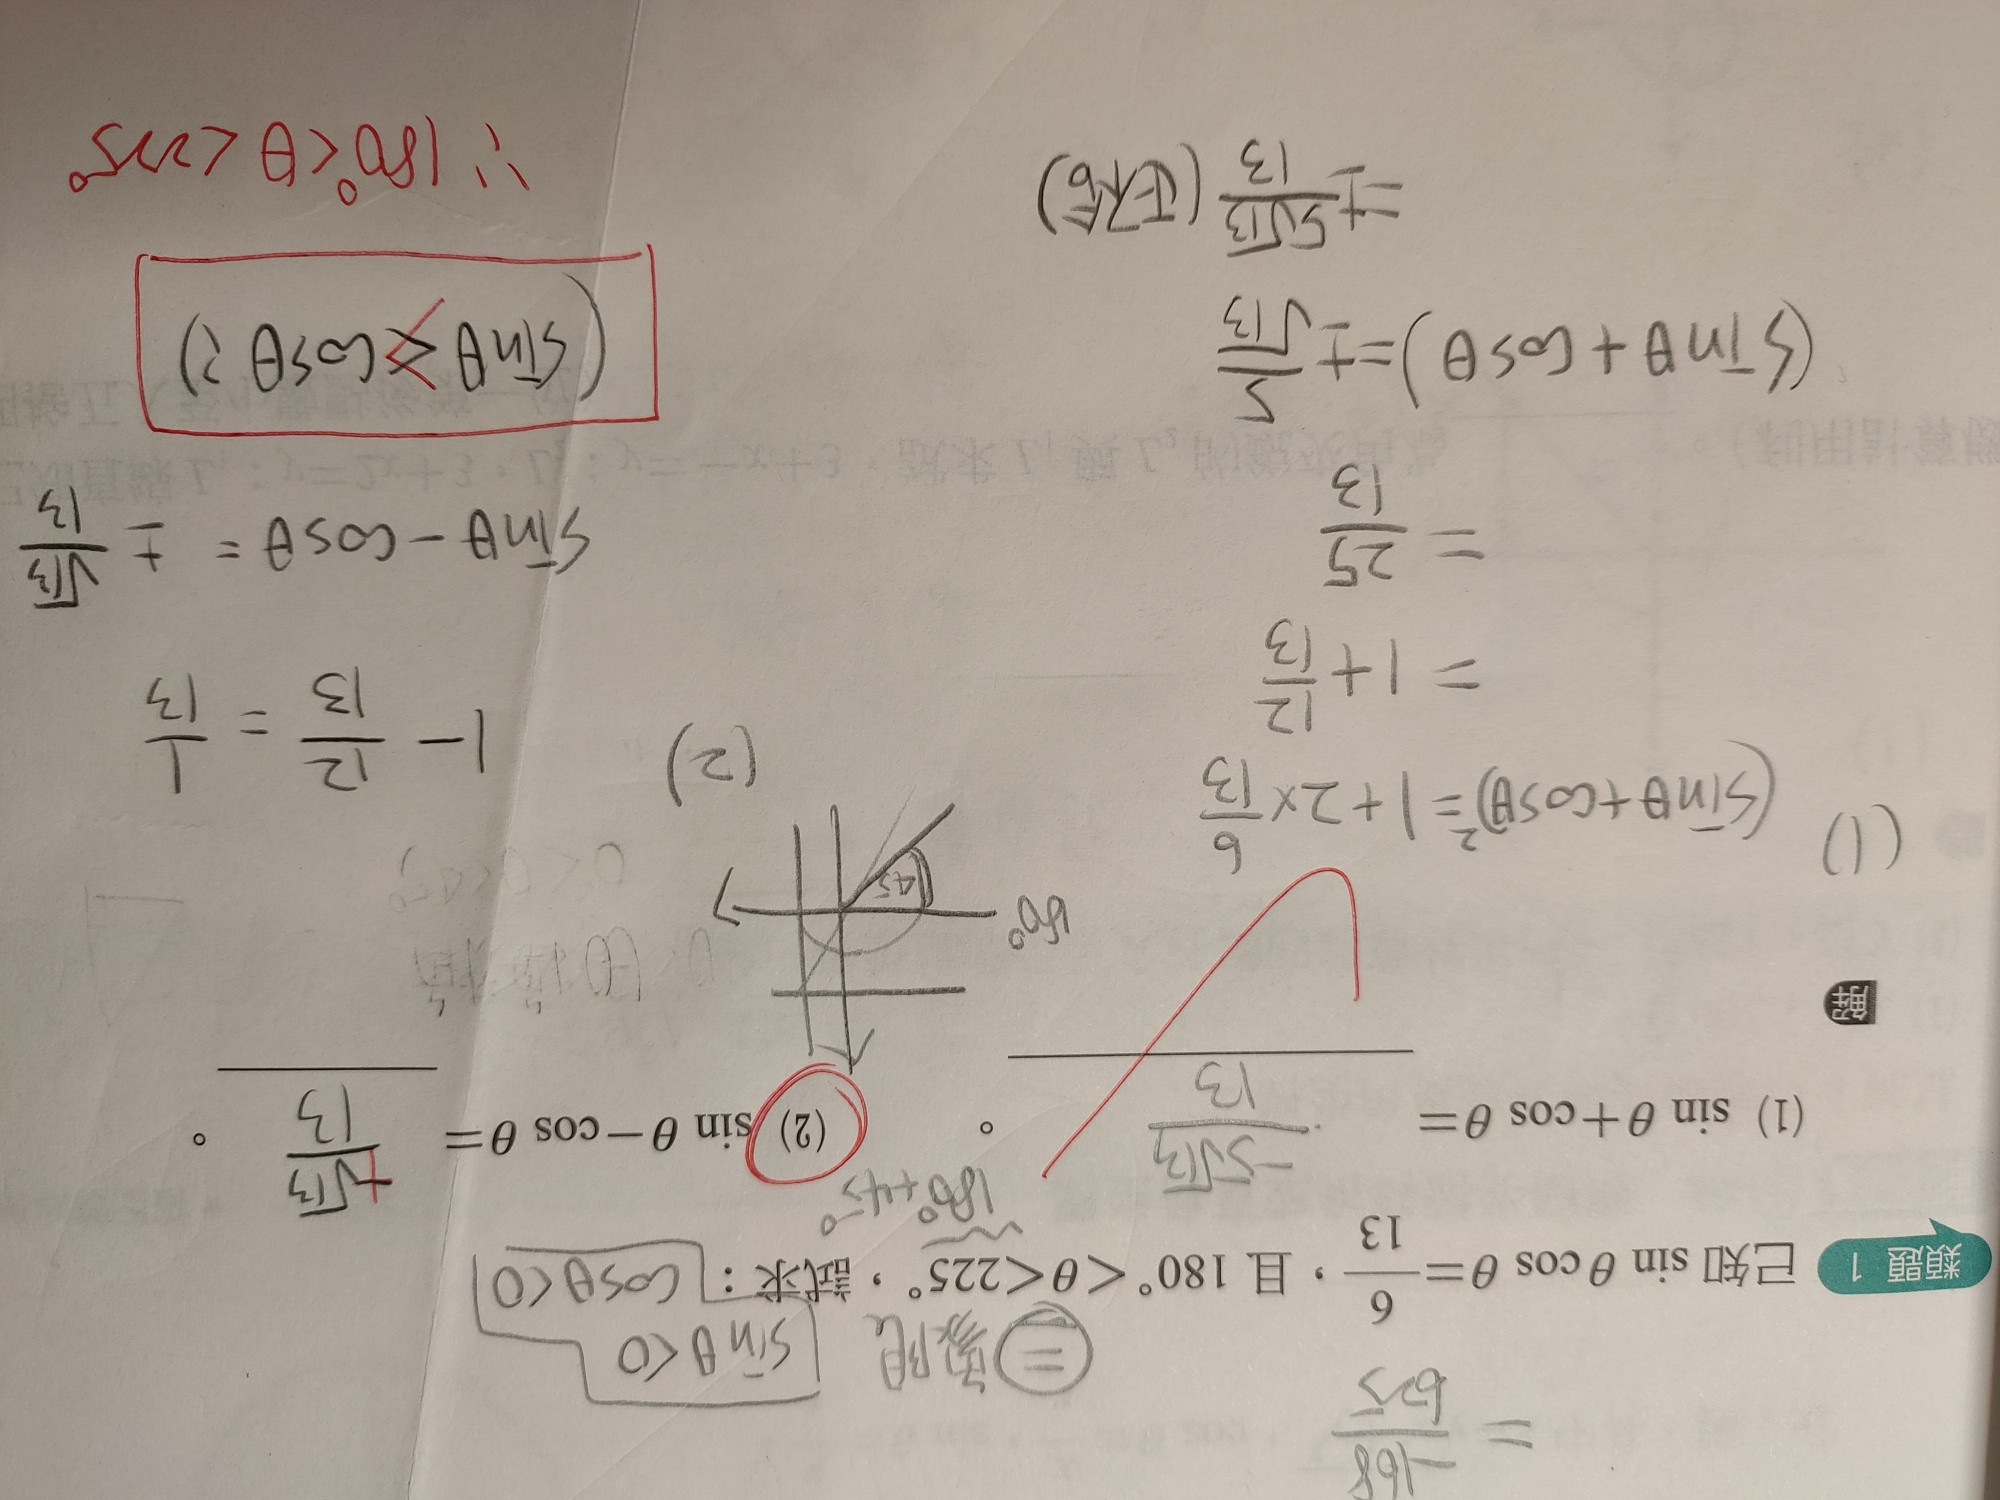 = -168/625
三象限 sinθ<0
類題 1 已知 sin θ cos θ=6/13,且 180°<θ<225°,試求: cosθ<0
180°+45°
(1) sin θ+cos θ= -5√13/13 。 (2) sin θ-cos θ= +√13/13 。
解
180°
45
(1) (sinθ+cosθ)²=1+2×6/13
=1+12/13
=25/13
(sinθ+cosθ)=±5/√13
=±5√13/13 (正不合)
(2) 1-12/13=1/13
sinθ-cosθ= ±√13/13
(sinθ>cosθ?)
∴180°<θ<225°